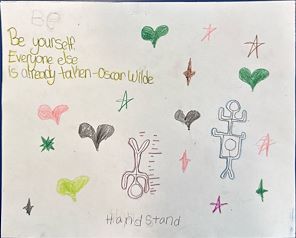 Be
Be yourself.
Everyone else
is already taken-Oscar Wilde
HandStand